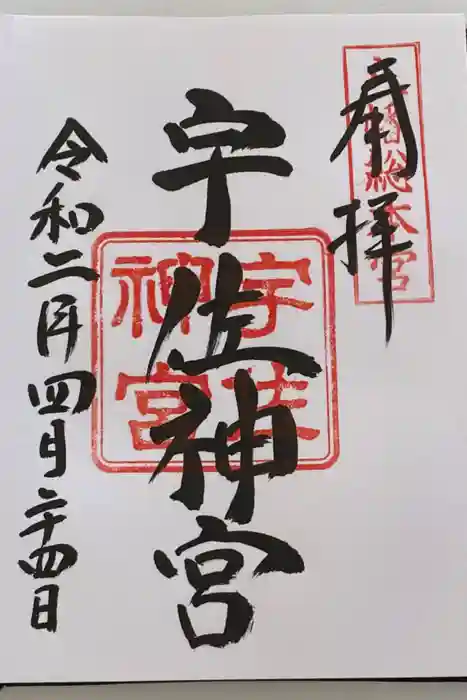 奉拝
八幡総本宮
宇佐神宮
宇佐
神宮
令和二年四月二十四日